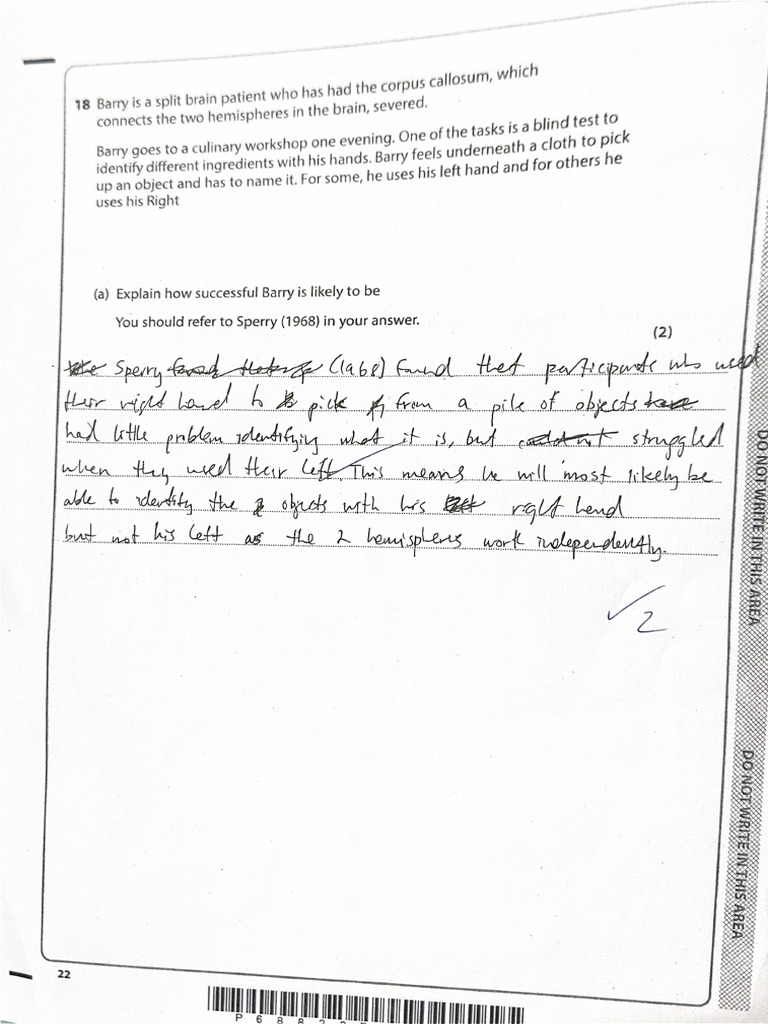 18 Barry is a split brain patient who has had the corpus callosum, which
connects the two hemispheres in the brain, severed.
Barry goes to a culinary workshop one evening. One of the tasks is a blind test to
identify different ingredients with his hands. Barry feels underneath a cloth to pick
up an object and has to name it. For some, he uses his left hand and for others he
uses his Right
(a) Explain how successful Barry is likely to be
You should refer to Sperry (1968) in your answer.
(2)
Sperry (1968) found that participants who used
their right hand to pick from a pile of objects
had little problem identifying what it is, but struggled
when they used their left. This means he will most likely be
able to identify the objects with his right hand
but not his left as the 2 hemispheres work independently.
✓2
DO NOT WRITE IN THIS AREA
DO NOT WRITE IN THIS AREA
22
P 6 8 8